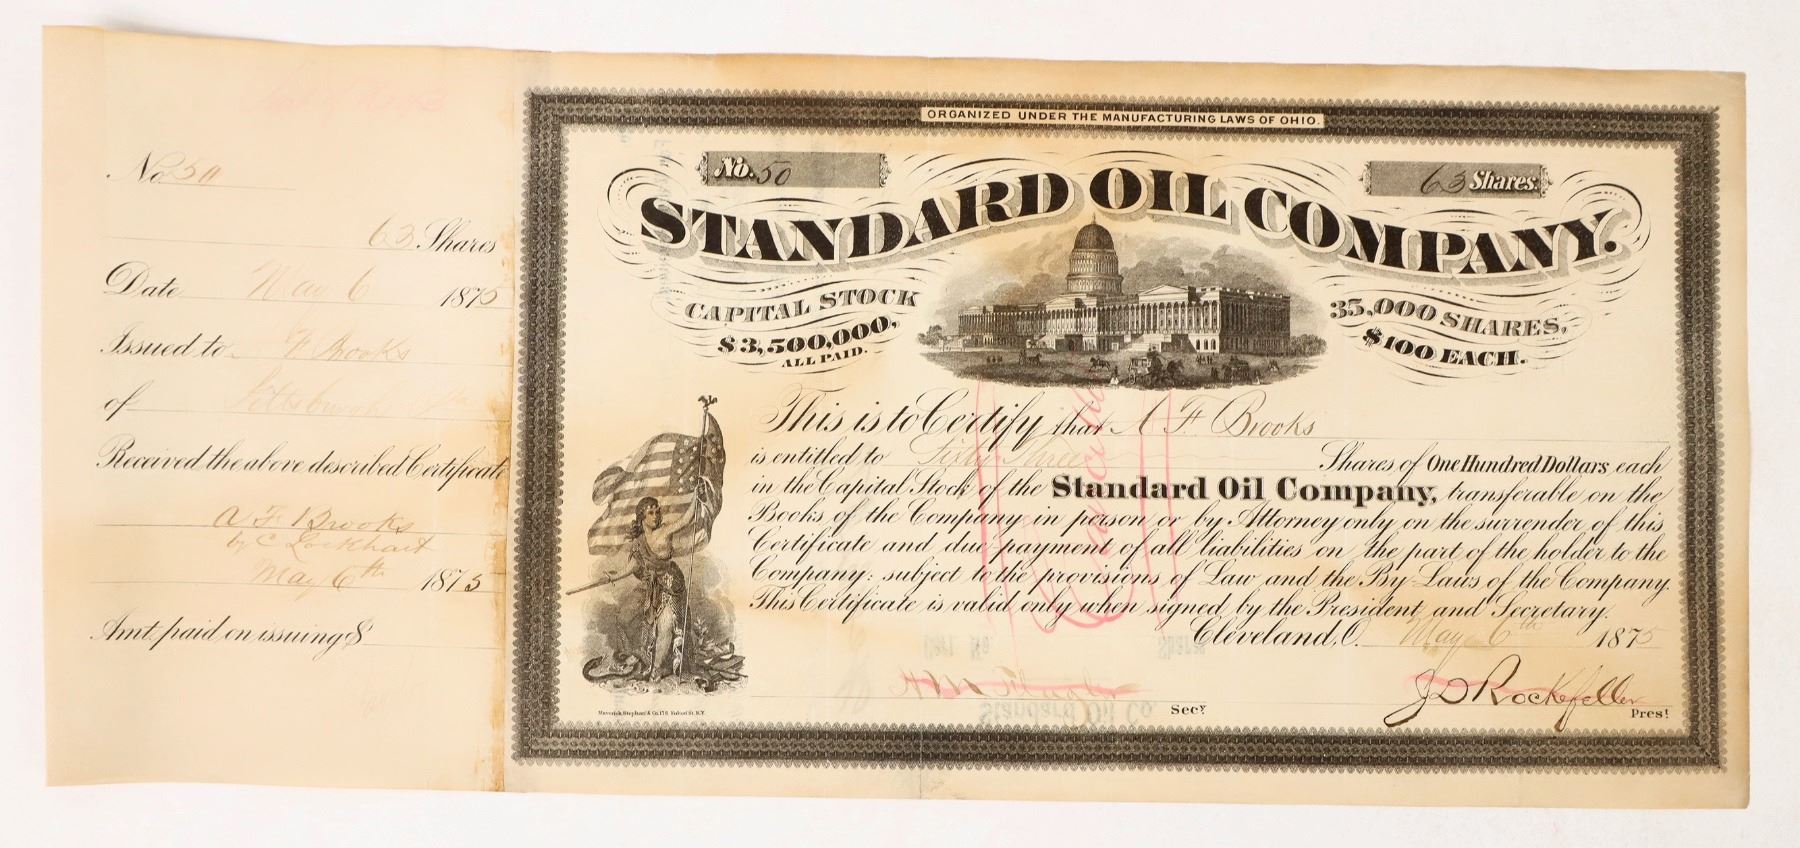 No. 50
63 Shares
Date May 6 1875
Issued to F Brooks
of Pittsburgh
Received the above described Certificate
A F Brooks
by C Lockhart
May 6th 1875
Amt. paid on issuing $
ORGANIZED UNDER THE MANUFACTURING LAWS OF OHIO.
No. 50
63 Shares.
STANDARD OIL COMPANY.
CAPITAL STOCK
$3,500,000,
ALL PAID.
35,000 SHARES,
$100 EACH.
This is to Certify that A F Brooks
is entitled to Sixty Three Shares of One Hundred Dollars each
in the Capital Stock of the Standard Oil Company, transferable on the
Books of the Company in person or by Attorney only on the surrender of this
Certificate and due payment of all liabilities on the part of the holder to the
Company: subject to the provisions of Law and the By-Laws of the Company.
This Certificate is valid only when signed by the President and Secretary.
Cleveland, O. May 6th 1875
H M Flagler Secy.
J D Rockefeller Prest
Cancelled
Standard Oil Co.
Cert. No.
Shares